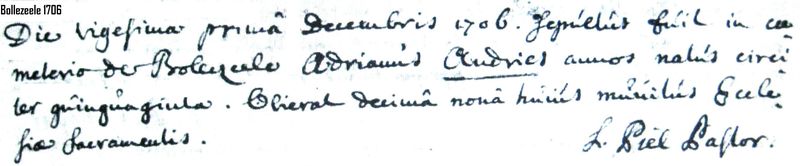 Bollezeele 1706
Die vigesima primâ decembris 1706. Sepultus fuit in cæ
meterio de Bolezeele Adrianus Andries annos natus circi
ter quinquaginta. Obierat decimâ nonâ huius munitus Eccle
siæ Sacramentis.
L. Piël Pastor.